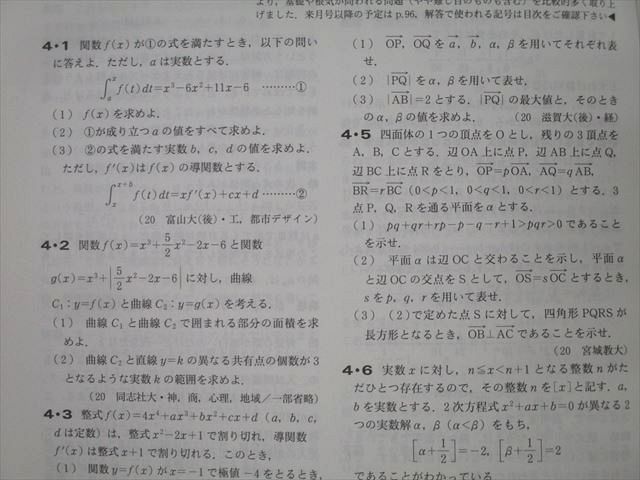 より，基礎や根気が問われる問題（やや難し目のものも含む）を比較的多く取り上
げました．来月号以降の予定は p.96，解答で使われる記号は目次をご確認下さい◀
4・1 関数 f(x) が①の式を満たすとき，以下の問い
に答えよ．ただし，a は実数とする．
∫_a^x f(t)dt=x³−6x²+11x−6 ………①
（1） f(x) を求めよ．
（2） ①が成り立つ a の値をすべて求めよ．
（3） ②の式を満たす実数 b, c, d の値を求めよ．
ただし，f′(x) は f(x) の導関数とする．
∫_x^{x+b} f(t)dt=xf′(x)+cx+d ………②
（20 富山大(後)・工，都市デザイン）
4・2 関数 f(x)=x³+5/2x²−2x−6 と関数
g(x)=x³+|5/2x²−2x−6| に対し，曲線
C₁：y=f(x) と曲線 C₂：y=g(x) を考える．
（1） 曲線 C₁ と曲線 C₂ で囲まれる部分の面積を求
めよ．
（2） 曲線 C₂ と直線 y=k の異なる共有点の個数が 3
となるような実数 k の範囲を求めよ．
（20 同志社大・神，商，心理，地域／一部省略）
4・3 整式 f(x)=4x⁴+ax³+bx²+cx+d（a, b, c,
d は定数）は，整式 x²−2x+1 で割り切れ，導関数
f′(x) は整式 x+1 で割り切れる．このとき，
（1） 関数 y=f(x) が x=−1 で極値 −4 をとるとき，
（1） OP→，OQ→ を a→，b→，α，β を用いてそれぞれ表
せ．
（2） |PQ→| を α，β を用いて表せ．
（3） |AB→|=2 とする．|PQ→| の最大値と，そのとき
の α，β の値を求めよ． （20 滋賀大(後)・経）
4・5 四面体の 1 つの頂点を O とし，残りの 3 頂点を
A，B，C とする．辺 OA 上に点 P，辺 AB 上に点 Q，
辺 BC 上に点 R をとり，OP→=pOA→，AQ→=qAB→，
BR→=rBC→（0<p<1，0<q<1，0<r<1）とする．3
点 P，Q，R を通る平面を α とする．
（1） pq+qr+rp−p−q−r+1>pqr>0 であること
を示せ．
（2） 平面 α は辺 OC と交わることを示し，平面 α
と辺 OC の交点を S として，OS→=sOC→ とするとき，
s を p，q，r を用いて表せ．
（3） （2）で定めた点 S に対して，四角形 PQRS が
長方形となるとき，OB→⊥AC→ であることを示せ．
（20 宮城教大）
4・6 実数 x に対し，n≦x<n+1 となる整数 n がた
だひとつ存在するので，その整数 n を [x] と記す．a，
b を実数とする．2 次方程式 x²+ax+b=0 が異なる 2
つの実数解 α，β（α<β）をもち，
[α+1/2]=−2，[β+1/2]=2
であることがわかっている